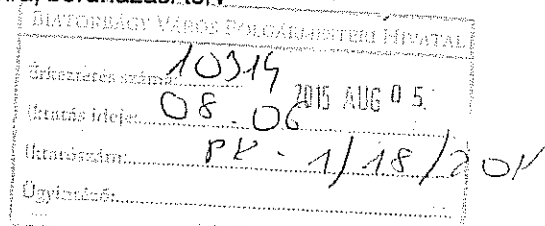 BIATORBÁGY VÁROS POLGÁRMESTERI HIVATAL
Érkeztetés száma: 10314
2015 AUG 05.
Iktatás ideje: 08.06
Iktatószám: PK-1/18/201
Ügyintéző: